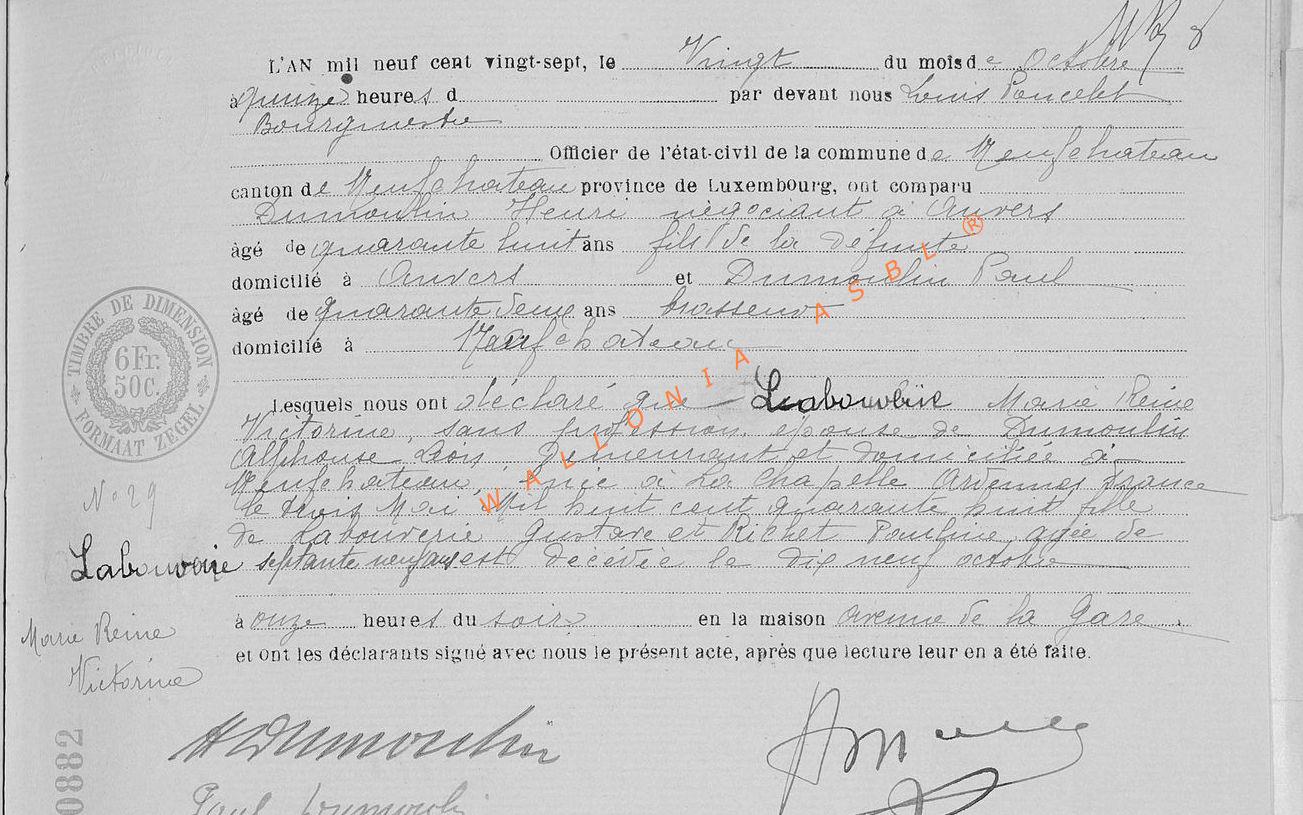 L'AN mil neuf cent vingt-sept, le Vingt du mois de Octobre
à quinze heures d par devant nous Louis Poncelet
Bourgmestre
Officier de l'état-civil de la commune de Neufchateau
canton de Neufchateau province de Luxembourg, ont comparu
Dumoulin Henri négociant à Anvers
âgé de quarante huit ans fils de la défunte
domicilié à Anvers et Dumoulin Paul
âgé de quarante deux ans brasseur
domicilié à Neufchateau
TIMBRE DE DIMENSION
6 Fr.
50 C.
FORMAAT ZEGEL
Lesquels nous ont déclaré que Labouverie Marie Reine
Victorine, sans profession, épouse de Dumoulin
Alphonse demeurant et domiciliée à
Neufchateau, née à La Chapelle Ardennes France
le trois Mai Mil huit cent quarante huit fille
de Labouverie Gustave et Richet Pauline, agée de
septante neuf ans est décédée le dix neuf octobre
à onze heures du soir en la maison avenue de la Gare.
et ont les déclarants signé avec nous le présent acte, après que lecture leur en a été faite.
No 29
Labouverie
Marie Reine
Victorine
HDumoulin
Paul Dumoulin
0882
WALLONIA ASBL ®